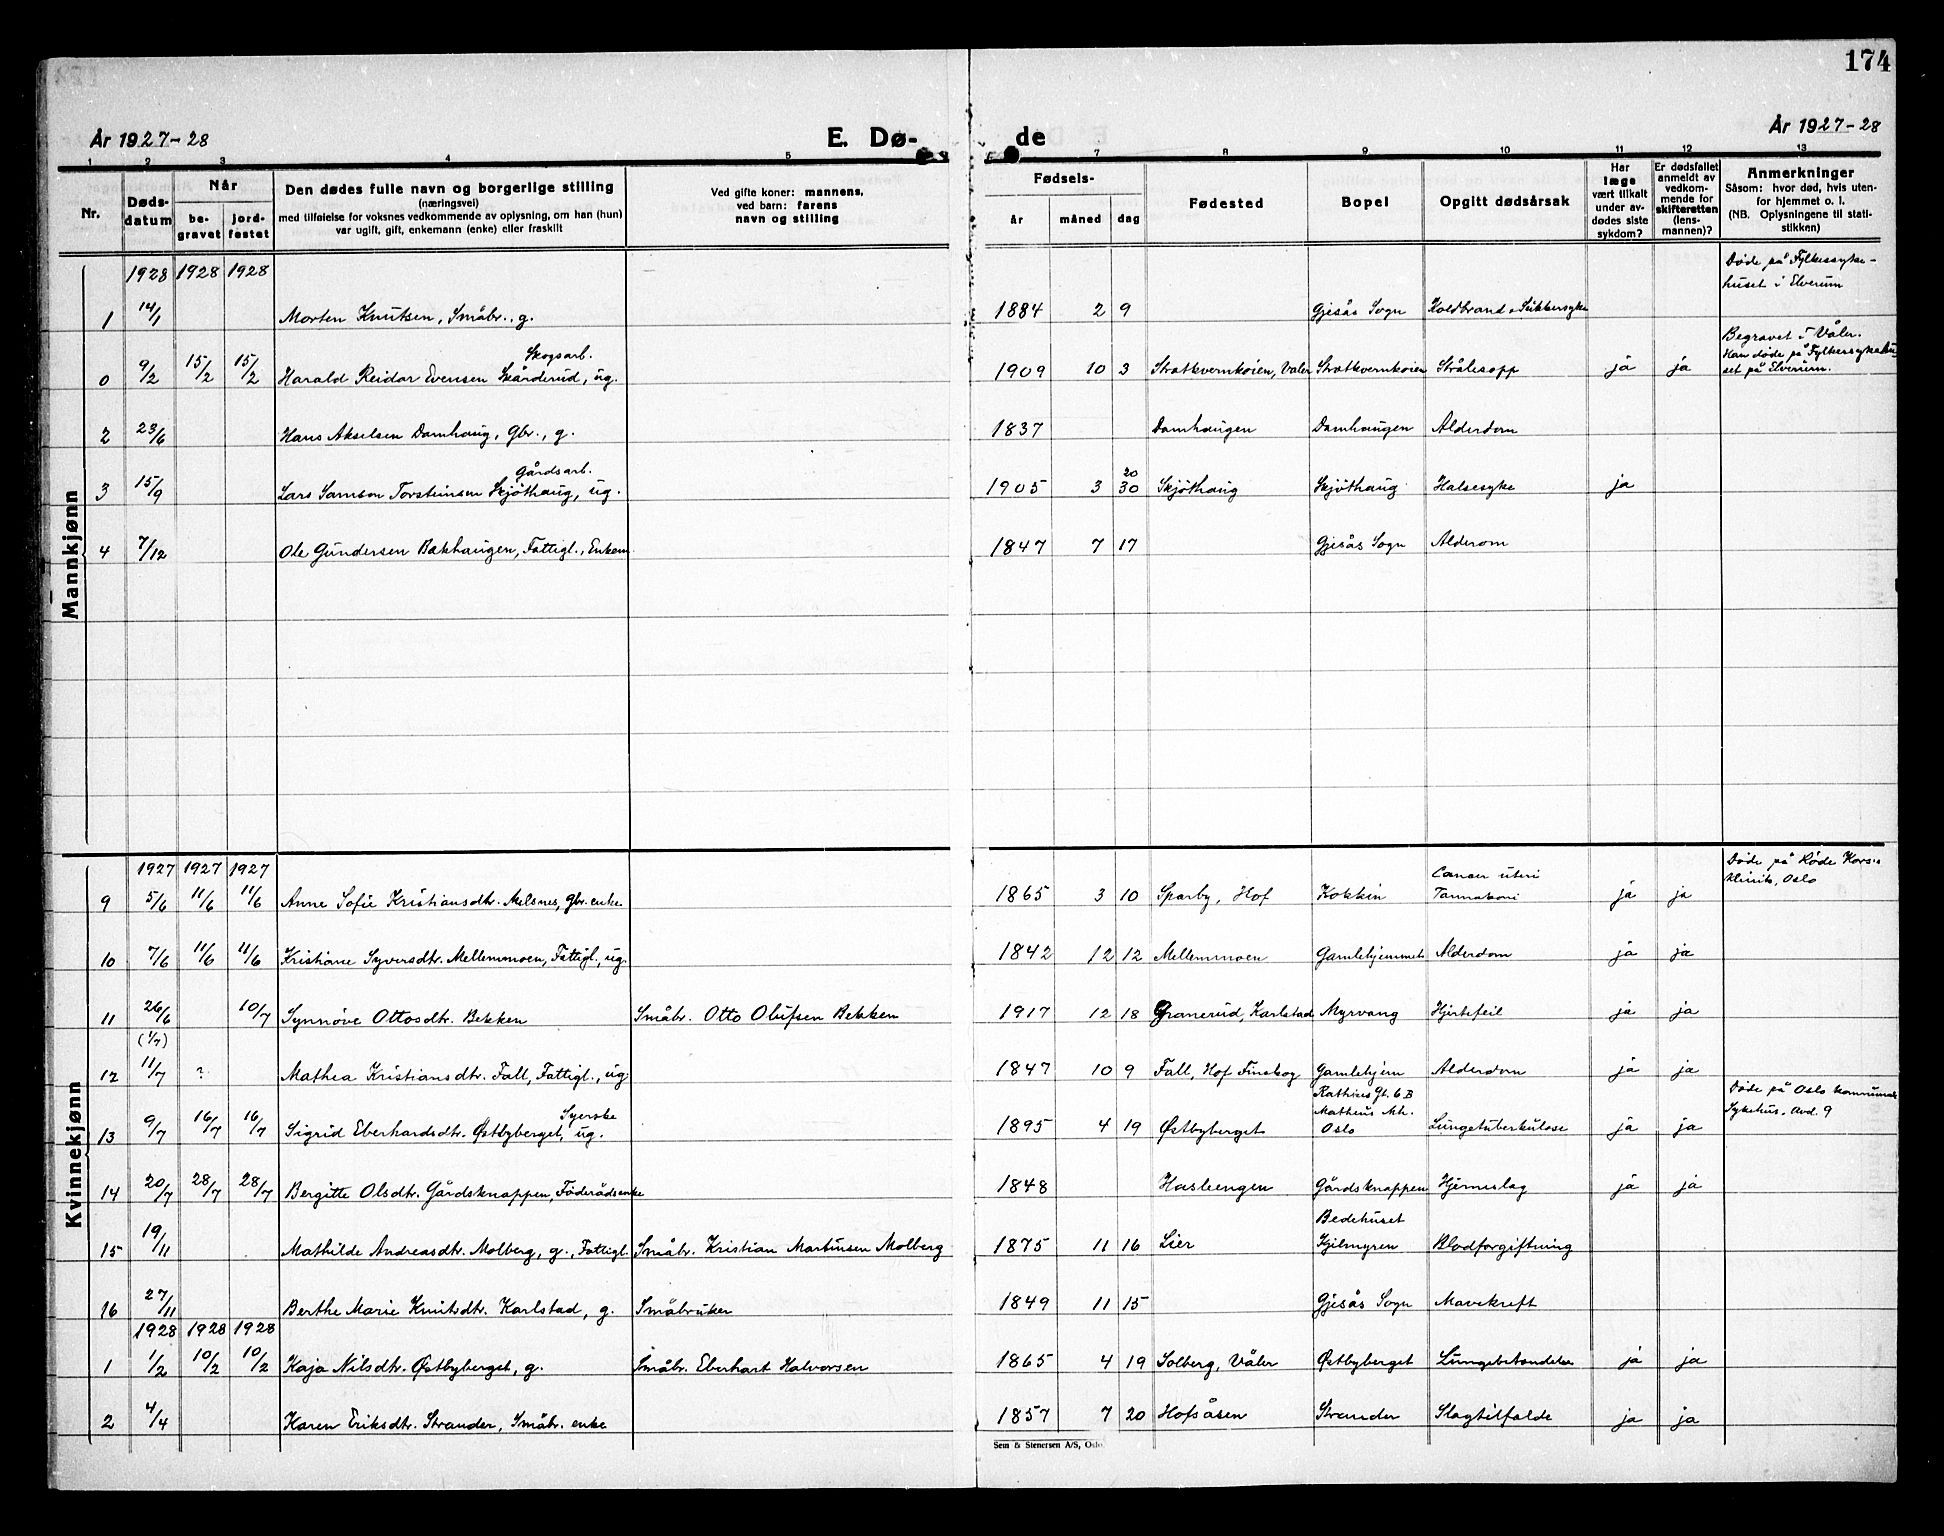 174
År 1927-28
E. Dø-
de
År 1927-28
1 2 3 4 5 7 8 9 10 11 12 13
Nr.
Døds-
datum
Når
be-
gravet
jord-
festet
Den dødes fulle navn og borgerlige stilling
(næringsvei)
med tilføielse for voksnes vedkommende av oplysning, om han (hun)
var ugift, gift, enkemann (enke) eller fraskilt
Ved gifte koner: mannens,
ved barn: farens
navn og stilling
Fødsels-
år måned dag
Fødested
Bopel
Opgitt dødsårsak
Har
læge
vært tilkalt
under av-
dødes siste
sykdom?
Er dødsfallet
anmeldt av
vedkom-
mende for
skifteretten
(lens-
mannen)?
Anmerkninger
Såsom: hvor død, hvis uten-
for hjemmet o. l.
(NB. Oplysningene til stati-
stikken)
Mannkjønn
1928 1928 1928
Døde på Fylkessyke-
huset i Elverum
1 14/1 Morten Knutsen, Småbr., g. 1884 2 9 Gjesås Sogn Koldbrand o Sukkersyke
Skogsarb.
Begravet i Våler.
Han døde på Fylkessykehu-
set på Elverum.
0 9/2 15/2 15/2 Harald Reidar Evensen Skårderud, ug. 1909 10 3 Strætkvernkoien, Våler Strætkvernkoien Strålesopp ja ja
2 23/6 Hans Akselsen Damhaug, Gbr., g. 1837 Damhaugen Damhaugen Alderdom
Gårdsarb.
20
3 15/9 Lars Samson Torsteinsen Skjøthaug, ug. 1905 3 30 Skjøthaug Skjøthaug Halsesyke ja
4 7/12 Ole Gundersen Bakhaugen, Fattigl., Enkem. 1847 7 17 Gjesås Sogn Alderom
Kvinnekjønn
1927 1927 1927
Døde på Røde Kors.
Klinikk, Oslo
Cancer uteri
9 5/6 11/6 11/6 Anne Sofie Kristiansdtr. Melsnes, gbr. enke 1865 3 10 Sparby, Hof Kokkin ja ja
10 7/6 11/6 11/6 Kristiane Syversdtr. Mellemmoen, Fattigl., ug. 1842 12 12 Mellemmoen Gamlehjemmet Alderdom ja ja
11 26/6 10/7 Synnöve Ottosdtr. Bekken Småbr. Otto Olufsen Bekken 1917 12 18 Granerud, Karlstad Myrvang Hjertefeil ja ja
(1/7)
12 11/7 ? Mathea Kristiansdtr. Fall, Fattigl., ug. 1847 10 9 Fall, Hof Finskog Gamlehjem Alderdom ja ja
Syerske
Gt. 6 B
Oslo
Døde på Oslo kommunale
Sykehus. Avd. 9
13 9/7 16/7 16/7 Sigrid Eberhardsdtr. Østbyberget, ug. 1895 4 19 Østbyberget Lungetuberkulose ja ja
14 20/7 28/7 28/7 Bergitte Olsdtr. Gårdsknappen, Föderådsenke 1848 Hasleengen Gårdsknappen Hjerneslag ja ja
Bedehuset
15 19/11 Mathilde Andreasdtr. Molberg, g., Fattigl. Småbr. Kristian Martinsen Molberg 1875 11 16 Lier Kjilmyren Blodforgiftning
16 27/11 Berthe Marie Knutsdtr. Karlstad, g. Småbruker 1849 11 15 Gjesås Sogn Mavekreft
1928 1928 1928
1 1/2 10/2 10/2 Kaja Nilsdtr. Østbyberget, g. Småbr. Eberhart Halvorsen 1865 4 19 Solberg, Våler Østbyberget Lungebetendelse ja ja
2 4/4 Karen Eriksdtr. Strander, Småbr. enke 1857 7 20 Hofsåsen Strander Slagtilfælde ja ja
Sem & Stenersen A/S, Oslo